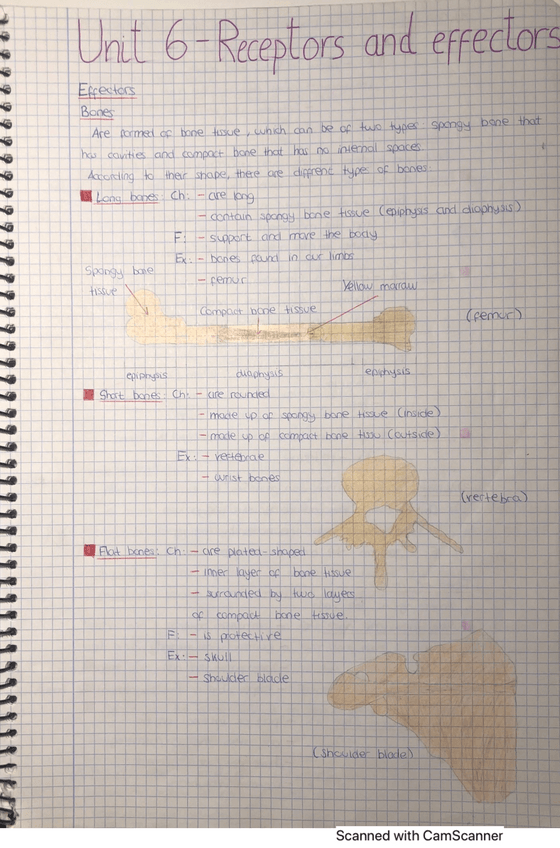 Unit 6 - Receptors and effectors
Effectors
Bones
Are formed of bone tissue, which can be of two types: spongy bone that
has cavities and compact bone that has no internal spaces.
According to their shape, there are different type of bones:
Long bones: Ch: - are long
- contain spongy bone tissue (epiphysis and diaphysis)
F: - support and move the body
Ex: - bones found in our limbs
- femur
Spongy bone
tissue
Yellow marrow
Compact bone tissue
(femur)
epiphysis diaphysis epiphysis
Short bones: Ch: - are rounded
- made up of spongy bone tissue (inside)
- made up of compact bone tissu (outside)
Ex: - vertebrae
- wrist bones
(vertebra)
Flat bones: Ch: - are plated-shaped
- inner layer of bone tissue
- surrounded by two layers
of compact bone tissue.
F: - is protective
Ex: - skull
- shoulder blade
(shoulder blade)
Scanned with CamScanner